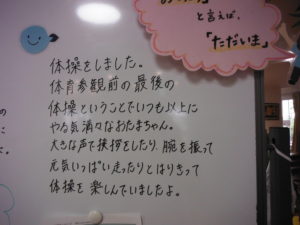 と言えば、
「ただいま」
体操をしました。
体育参観前の最後の
体操ということでいつも以上に
やる気満々なおたまちゃん。
大きな声で挨拶をしたり、腕を振って
元気いっぱい走ったりとはりきって
体操を楽しんでいましたよ。